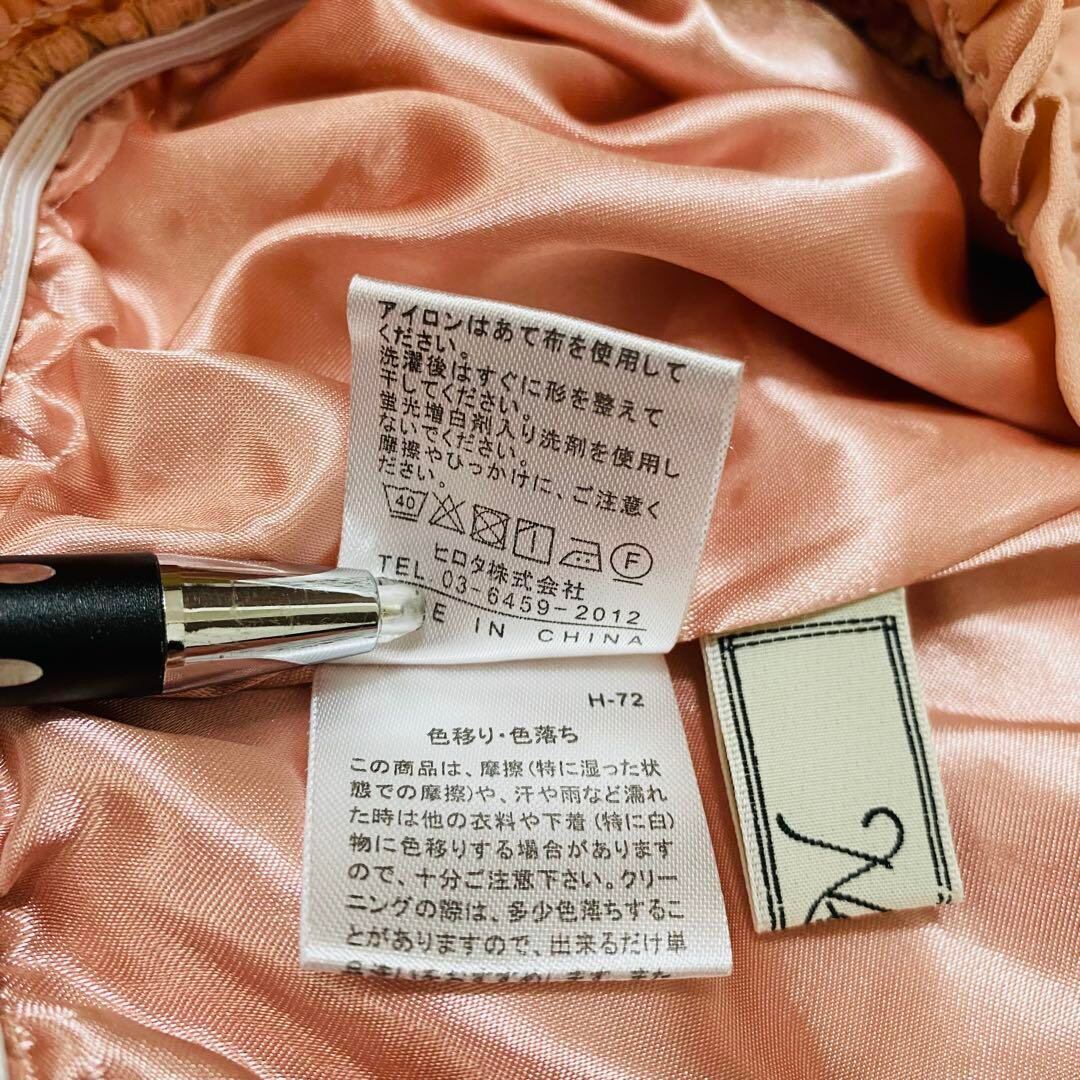 アイロンはあて布を使用して
ください。
洗濯後はすぐに形を整えて
干してください。
蛍光増白剤入り洗剤を使用し
ないでください。
摩擦やひっかけに、ご注意く
ださい。
40 F
ヒロタ株式会社
TEL 03-6459-2012
E IN CHINA
H-72
色移り・色落ち
この商品は、摩擦(特に湿った状
態での摩擦)や、汗や雨など濡れ
た時は他の衣料や下着(特に白)
物に色移りする場合があります
ので、十分ご注意下さい。クリー
ニングの際は、多少色落ちするこ
とがありますので、出来るだけ単
品洗いをおすすめします。また